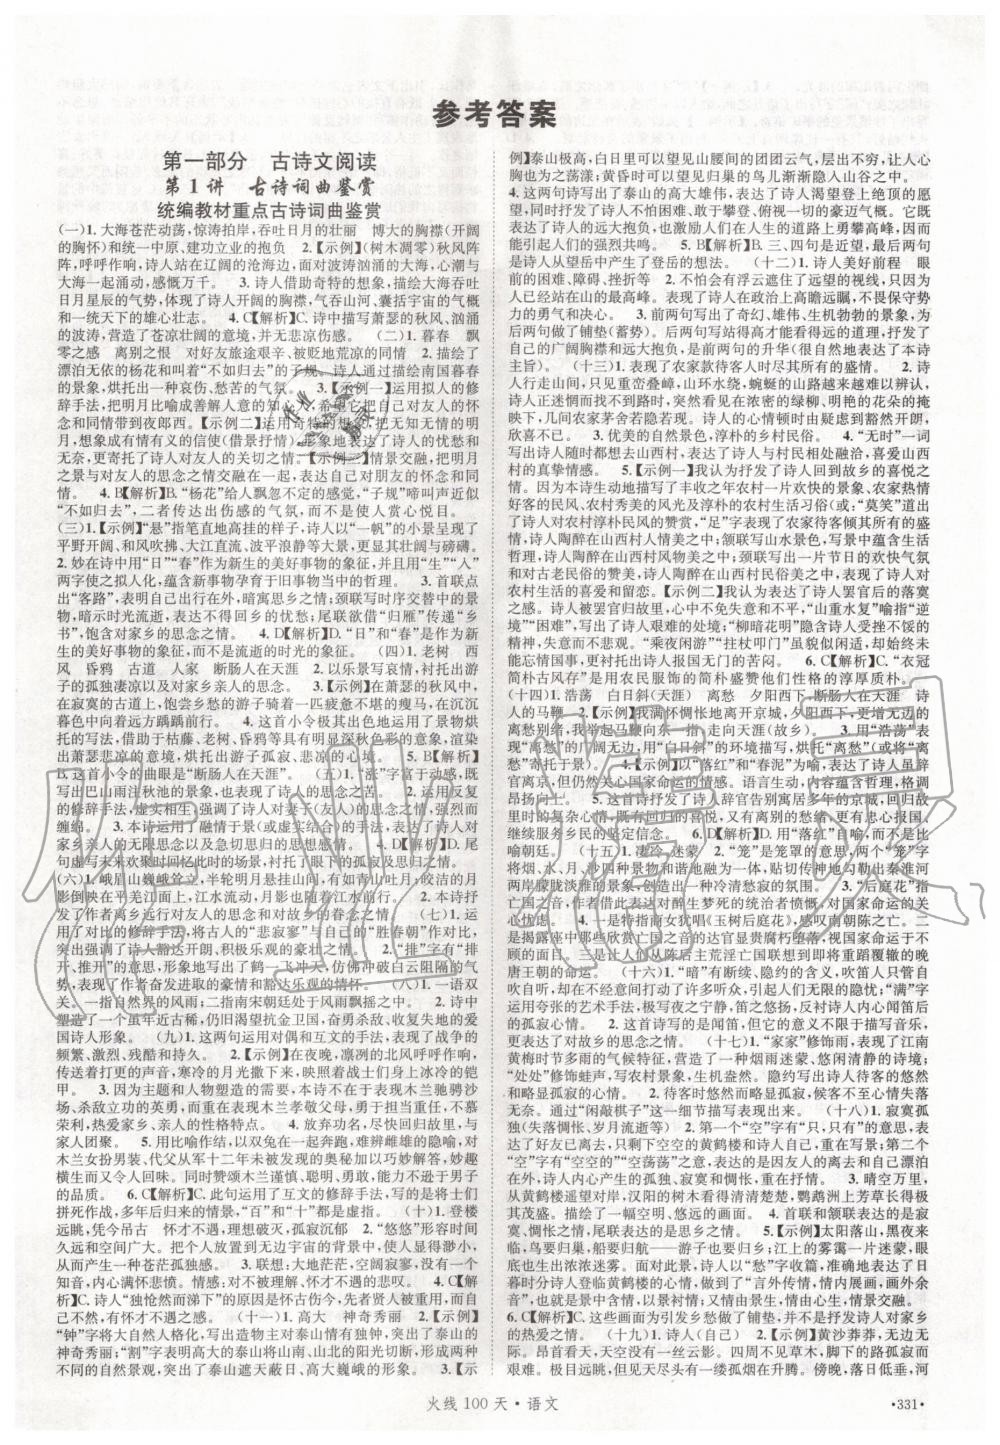 参考答案
第一部分　古诗文阅读
第1讲　古诗词曲鉴赏
统编教材重点古诗词曲鉴赏
(一)1. 大海苍茫动荡，惊涛拍岸，吞吐日月的壮丽　博大的胸襟(开阔
的胸怀)和统一中原、建功立业的抱负　2.【示例】(树木凋零)秋风阵
阵，呼呼作响，诗人站在辽阔的沧海边，面对波涛汹涌的大海，心潮与
大海一起涌动，感慨万千。　3. 诗人借助奇特的想象，描绘了大海吞吐
日月星辰的气势，体现了诗人开阔的胸襟，气吞山河、囊括宇宙的气概
和一统天下的雄心壮志。　4. C【解析】C. 诗中描写萧瑟的秋风、汹涌
的波涛，营造了苍凉壮阔的意境，并无悲凉伤感。　(二)1. 暮春　飘
零之感　离别之恨　对好友旅途艰辛、被贬地荒凉的同情　2. 描绘了
漂泊无依的杨花和叫着“不如归去”的子规。诗人通过描绘南国暮春
的景象，烘托出一种哀伤、愁苦的气氛。　3.【示例一】运用拟人的修
辞手法，把明月比喻成善解人意的知心人，希望它把自己对友人的怀念
和同情带到夜郎西。【示例二】运用奇特的想象，把无知无情的明
月，想象成有情有义的信使(借景抒情)，形象地表达了诗人的忧愁和
无奈，更寄托着诗人对友人的关切之情。【示例三】情景交融，把明月
之景与对友人的思念之情交融在一起，表达自己对友人的怀念和同
情。　4. B【解析】B. “杨花”给人飘忽不定的感觉，“子规”啼叫声近似
“不如归去”，二者传达出伤感的气氛，而不是使人赏心悦目。
(三)1.【示例】“悬”指笔直地高挂的样子，诗人以“一帆”的小景呈现了
平野开阔、和风吹拂、大江直流、波平浪静的大景，更显其壮阔与磅礴。
2. 妙在诗中用“日”“春”作为新生的美好事物的象征，并且用“生”“入”
两字使之拟人化，蕴含新事物孕育于旧事物当中的哲理。　3. 首联点
出“客路”，表明自己出行在外，暗寓思乡之情；颈联写时序交替中的景
物，暗示时光流逝，表达出不得回乡的忧愁；尾联欲借“归雁”传递“乡
书”，饱含对家乡的思念之情。　4. D【解析】D. “日”和“春”是作为新生
的美好事物的象征，而不是流逝的时光的象征。　(四)1. 老树　西
风　昏鸦　古道　人家　断肠人在天涯　2. 以乐景写哀情，衬托出游
子的孤独凄凉以及对家乡亲人的思念。　3.【示例】在萧瑟的秋风中，
在寂寞的古道上，饱尝乡愁的游子骑着一匹疲惫不堪的瘦马，在沉沉
暮色中向着远方踽踽独行。　4. 这首小令极其出色地运用了景物烘
托的写法，借助于枯藤、老树、昏鸦等具有明显深秋色彩的景象，渲染
出萧瑟悲凉的意境，烘托出游子孤寂、悲凉的情怀。　5. B【解析】
B. 这首小令的曲眼是“断肠人在天涯”。　(五)1. “涨”字富于动感，既
写出巴山雨注秋池的景象，又写出了诗人对妻子(友人)的思念之情，
虽未明写，但思念之情已如秋池之水涨满诗人的心池。　2. 运用反复
的修辞手法，虚实相生，回环往复，表达了诗人思念之情，强烈而
缠绵。　3. 本诗运用了融情于景(或虚实结合)的手法，表达了诗人对
家乡亲人的无限思念以及急切思归的思想感情。　4. D【解析】D. 尾
句虚写未来欢聚时回忆今日的情景，衬托诗人的孤寂和思念之情。
(六)1. 峨眉山巍峨耸立，半轮明月悬挂高空，青山吐月，皎洁的月
影倒映在平羌江面上，江水流动，月影随着江水前行。　2. 本诗
抒发了作者离乡远行对友人的思念和对故乡的眷念之情。　(七)1. 运
用了对比的修辞手法，将古人的“悲寂寥”与自己的“胜春朝”作对比，
突出强调了诗人豁达开朗、积极乐观的豪壮之情。　2. “排”字有“排
开、推开”的意思，形象地写出了鹤一飞冲天，仿佛冲破白云阻隔的气
势，表现了作者奋发进取的豪情和豁达乐观的情怀。　(八)1. 一语双
关。一指自然界的风雨；二指南宋朝廷处于风雨飘摇之中。　2. 诗中
塑造了一个虽年近古稀，仍旧渴望抗金卫国，奋勇杀敌、收复失地的爱
国诗人形象。　(九)1. 这两句运用对偶和互文的手法，表现了战争的
频繁、激烈、残酷和持久。　2.【示例】在夜晚，凛冽的北风呼呼作响，
传来打更的声音，寒冷的月光撒下来，映照着战士们身上冰冷的铠
甲。　3. 因为主题和人物塑造的需要，本诗不在于表现木兰驰骋沙
场、杀敌立功的英勇，而重在表现木兰孝敬父母、勇于担当重任、不慕
荣利，热爱家乡、亲人的性格特点。　4. 放弃功名，尽快回到故乡，与
家人团聚。　5. 用比喻作结，以双兔在一起奔跑，难辨雌雄的隐喻，对
木兰女扮男装、代父从军十二年未被发现的奥秘加以巧妙解答，妙趣
横生而又令人回味。同时赞扬了木兰谨慎、聪明、勇敢，能力不逊于男子
的品质。　6. C【解析】C. 此句运用了互文的修辞手法，写的是将士们
拼死作战，多年征战后归来，句中的“百”和“十”都是虚指。　(十)1. 登楼
远眺，凭今吊古　怀才不遇，理想破灭，孤寂沉郁　2. “悠悠”形容时间
久远和空间广大。把个人放置到无边宇宙的背景中，使人越发显得渺小，
从而有一种苍茫孤独感。　3. 联想：大地茫茫，空阔寂寥，没有一个知
音，内心满怀悲愤。情感：对不被理解、怀才不遇的悲叹。　4. C【解
析】C. 诗人“独怆然而涕下”的原因是悲伤时光易逝，先者贤人被重用，而
自己不然，有怀才不遇之感。　(十一)1. 高大　神奇秀丽　2.【示例】
“钟”字将大自然人格化，写出造物主对泰山情有独钟，突出了泰山的
神奇秀丽；“割”字表现了高大的泰山将山南、山北的阳光切断，形成两种
不同的自然景观，突出了泰山遮天蔽日、高大巍峨的形象。　3.【示
例】泰山极高，白日可以望见山腰间的团团云气，层出不穷，让人心
胸也为之荡漾；黄昏时可以望见归巢的鸟儿渐渐隐入山谷之中。
4. 这两句诗写出了泰山的高大雄伟，表达了诗人渴望登上绝顶的愿
望，同时抒发了诗人不怕困难、敢于攀登、俯视一切的豪迈气概。它既
表现出诗人的远大抱负，也激励人们在人生的道路上勇攀高峰，因此
引起人们的强烈共鸣。　5. B【解析】B. 三、四句是近望，后两句是写
诗人从望岳中产生了登岳的愿望。　(十二)1. 诗人美好前程　眼
前的困难、障碍、挫折等　2. 不怕会有浮云遮住了远望的视线，只因为
人已经站在山的最高峰。表现了诗人在政治上高瞻远瞩，不畏保守势力
的勇气和决心。　3. 前两句写出了奇幻、雄伟、生机勃勃的景象，为
后两句做了铺垫(蓄势)。后两句写站得高才能看得远的道理，抒发了自
己的广阔胸襟和远大抱负，是前两句的升华(很自然地表现了本诗
主旨)。　(十三)1. 表现了农家款待客人时尽其所有的盛情。　2. 诗
人行走山间，只见重峦叠嶂，山环水绕，蜿蜒的山路越来越难以辨认，
诗人正迷惘之时，突然看见前面不远处，在浓密的绿柳、明艳的花朵的掩
映下，几间农家茅舍若隐若现。诗人的心情顿时由疑虑到豁然开朗，
欣喜兴奋。　3. 优美的自然景色，淳朴的乡村民俗。　4. “无时”一词
写出诗人随时都想去山西村，表现了诗人与村民相处融洽，热爱山西
村的真挚情感。　5.【示例一】我认为抒发了诗人回到故乡的喜悦之
情。因为本诗生动地描写了丰收之年农村一片愉快的景象，农家热情
好客的民风、农村秀美的风光及淳朴的农村生活习俗；或：“莫笑”道出了
诗人对农村淳朴民风的赞赏，“足”字表现了农家待客倾其所有的盛
情，诗人陶醉在山西村人情美之中；颔联写山水景色，写景中蕴含生活
哲理，诗人陶醉在山西村风物美之中；颈联写出一片节日的欢快气氛
和对古老民俗的赞美，诗人陶醉在山西村民俗之中，表现了诗人对农
村生活的喜爱和留恋。【示例二】我认为表达了诗人罢官后的落寞
之感。诗人被罢官归故里，心中不免愤愤不平，“山重水复”喻指“逆
境”“困难”，写出了诗人艰难的处境；“柳暗花明”隐含诗人受挫不馁的
精神，失意而不悲观。“乘夜闲游”“拄杖叩门”虽貌似闲适，却未
能忘国事，更衬托出诗人报国无门的苦闷。　6. C【解析】C. “衣冠
简朴古风存”是用农民服饰的简朴盛赞他们性格的淳厚质朴。
(十四)1. 浩荡　白日斜(天涯)　离愁　夕阳西下，断肠人在天涯　诗
人的马鞭　2.【示例】我满怀惆怅地离开京城，夕阳西下，更增添了我的
离愁别绪，我举起马鞭向东一指，走向天涯(故乡)。　3. 用“浩荡”表
现“离愁”的广阔无边，用“白日斜”的环境描写，烘托“离愁”(或寓离
愁之情于景)。　4. 以“落红”和“春泥”为喻，表达了诗人虽辞
官离京，仍然关心国家命运的感情。语言生动，内容蕴含哲理，格调
昂扬向上。　5. 这首诗抒发了诗人辞官告别寓居多年的京城，出都
时的复杂心情，既有回归的喜悦，又有离别的忧伤，更有忠心报国、
继续服务乡民的坚定信念。　6. D【解析】D. 用“落红”自喻，而不是比
喻朝廷。　(十五)1. 凄冷　迷蒙　2. “笼”是笼罩的意思，两个“笼”字
将烟、水、月、沙四种景物和谐地融合在一起，贴切传神地勾勒出秦淮河
两岸朦胧淡雅的景象，创造出一种清冷愁寂的氛围。　3. “后庭花”指
亡国之音，作者借此表达对醉生梦死的统治者的愤慨，对国家命运的关
心忧虑。　4. 一是特指商女犹唱《玉树后庭花》，感叹南朝陈之亡。二
是讽刺那些欣赏亡国之音的达官显贵腐朽堕落，视国家命运于不
顾的面目。三是让人们从陈后主荒淫亡国联想到即将重蹈覆辙的晚
唐王朝的命运。　(十六)1. “暗”有断续、隐约的含义，吹笛人只管自
吹自听，却在无意中打动了许多听众，表现了笛声的隐约；“满”字
运用夸张的艺术手法，极写夜之宁静，笛之悠扬，反衬诗人内心闻笛后
的孤寂心情。　2. 这首诗写的是闻笛，但它的意义不限于描写音乐，
更表达了对故乡的思念之情。　(十七)1. “家家”修饰雨，表现了江南
黄梅时节多雨的气候特征，营造了一种烟雨迷蒙、悠深清静的诗境；
“处处”修饰蛙声，写农村景象，更具动感，突出描写出诗人待客的悠然
和略显孤寂的情怀。　2. 表现了诗人孤独无聊，久候客不至心情落失
无奈。通过“闲敲棋子”这一细节描写表现出来。　(十八)1. 寂寞孤
独(失落惆怅、岁月流逝等)　2. 第一个“空”字有“只有、只剩”的意思，表
达了好友已离去，只剩下空空的黄鹤楼和诗人自己，重在写景；第二个
“空”字有“空空的”“空荡荡”之意，表达的是因友人的离去和自己漂泊
在外而感到心里空荡荡的，有一种寂寞惆怅之意，重在抒情。　3. 晴空万里，
从黄鹤楼遥望对岸，汉阳的树木看得清清楚楚，鹦鹉洲上芳草茂
盛。描绘了一幅空明、悠远的画面。　4. 首联和颔联表达的是寂
寞、惆怅之情，尾联表达的是思乡之情。　5.【示例】太阳落山，黑夜来
临，鸟要归巢，船要归航——游子也要归乡；江上的雾霭一片迷蒙，眼
底也生出浓浓迷雾。面对此景，诗人以“愁”字收篇，准确地表达了日
暮时分诗人登临黄鹤楼的心情，做到了“言外传情，情内展画，画外余
音”，使诗意由景生情，以景衬情；情由景生，情由心生，情景交融。
6. C【解析】C. 这些画面为引发乡愁做了铺垫，并不是抒发诗人对家乡
的热爱之情。　(十九)1. 诗人(自己)　2.【示例】黄沙莽莽，无边无
际。昂首看天，天空没有一丝云影。四周不见草木，断蓬路孤寂而
艰难。极目远眺，但见天尽头有一缕孤烟在升腾。傍晚，落日低垂，河
火线100天·语文
·331·